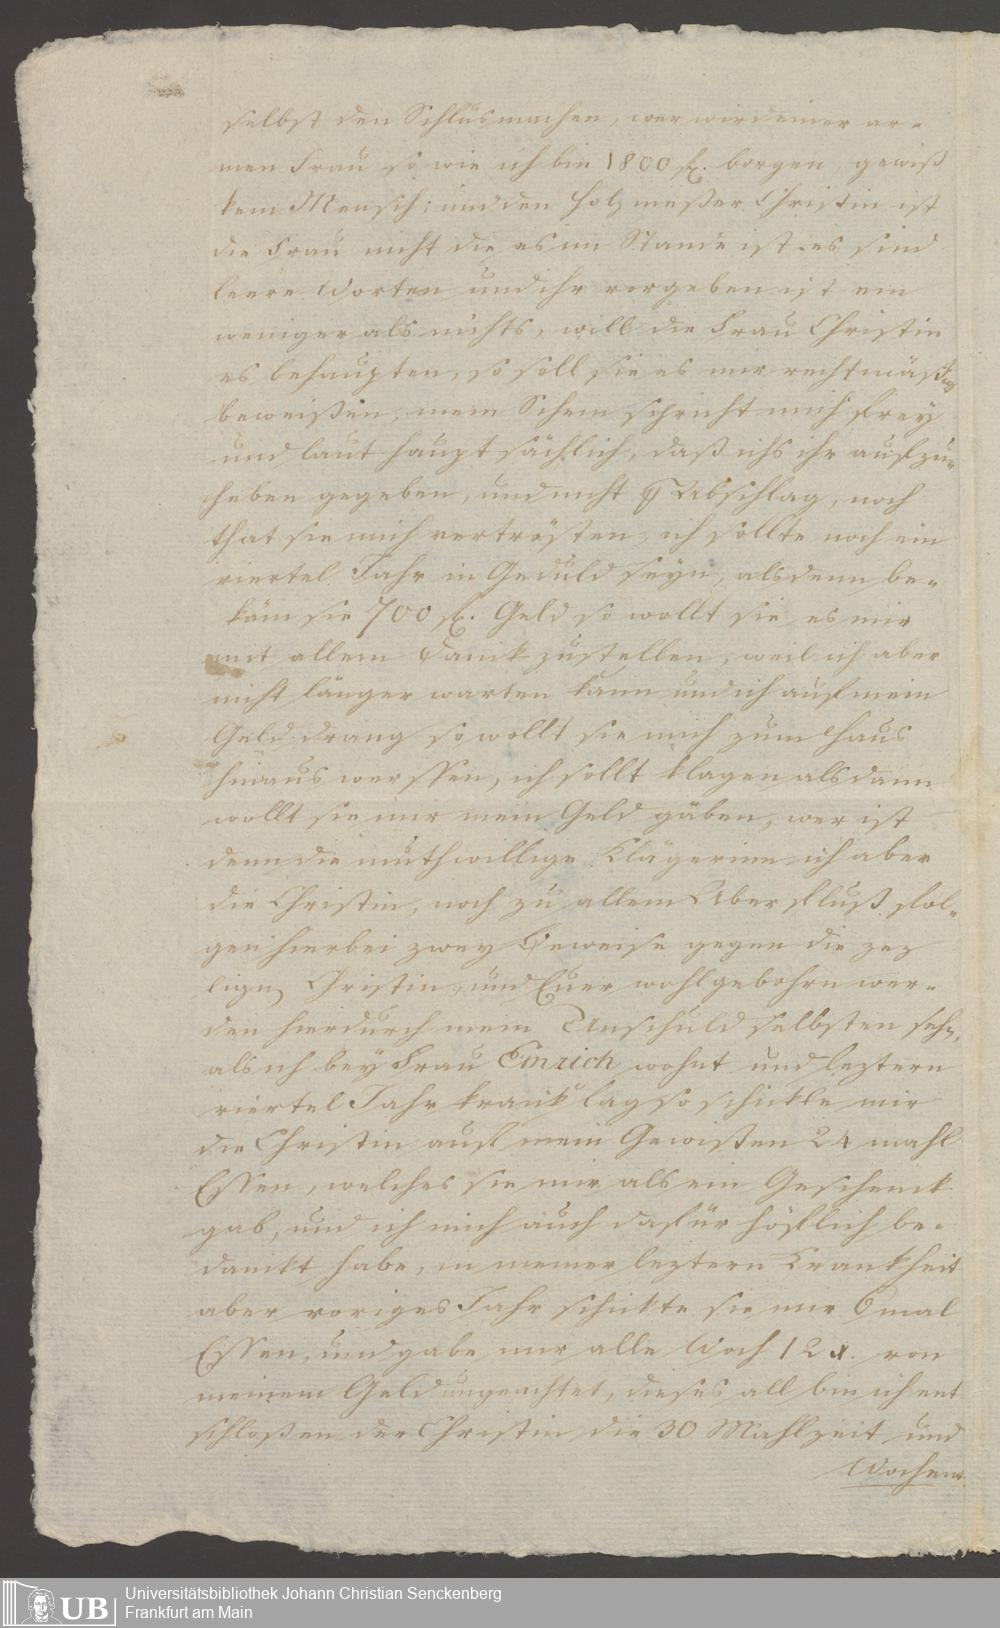 selbst den Schlus machen, wer wird einer ar-
men Frau so wie ich bin 1800 fl. borgen, gewiß
kein Mensch: und den Holzmeßer Christin ist
die Frau nicht die es im Stande ist es sind
leere Worten und ihr vorgeben ist ein
weniger als nichts, will die Frau Christin
es behaupten, so soll sie es mir rechtmäßig
beweißen, mein Schein spricht mich frey
und laut hauptsächlich, daß ichs ihr aufzu-
heben gegeben, und nicht Abschlag, noch
that sie mich vertrösten, ich sollte noch ein
viertel Jahr in Geduld seyn, alsdenn be-
käm sie 700 fl. Geld so wollt sie es mir
mit allem Danck zustellen, weil ich aber
nicht länger warten kann und ich auf mein
Geld drang so wollt sie mich zum Haus
hinaus werffen, ich sollt klagen alsdann
wollt sie mir mein Geld gäben, wer ist
denn die muthwillige Klägerinn ich aber
die Christin, noch zu allem Uberfluß fol-
gen hierbei zwey Beweise gegen die
Christin, und Euer wohlgebohrn wer-
den hierdurch mein Unschuld selbsten sehn,
als ich bey Frau Emrich wohnt und leztern
viertel Jahr kranck lag so schickte mir
die Christin auf mein Gewißen 24 mahl
Essen, welches sie mir als ein Geschenck
gab, und ich mich auch dafür höflich be-
danckt habe, in meiner leztern Kranckheit
aber voriges Jahr schickte sie mir 6 mal
Essen, und gabe mir alle Woch 12 x. von
meinem Geld ungeachtet, dieses all bin ich ent
schloßen der Christin die 30 Mahlzeit und
Wochen
Universitätsbibliothek Johann Christian Senckenberg
Frankfurt am Main
UB